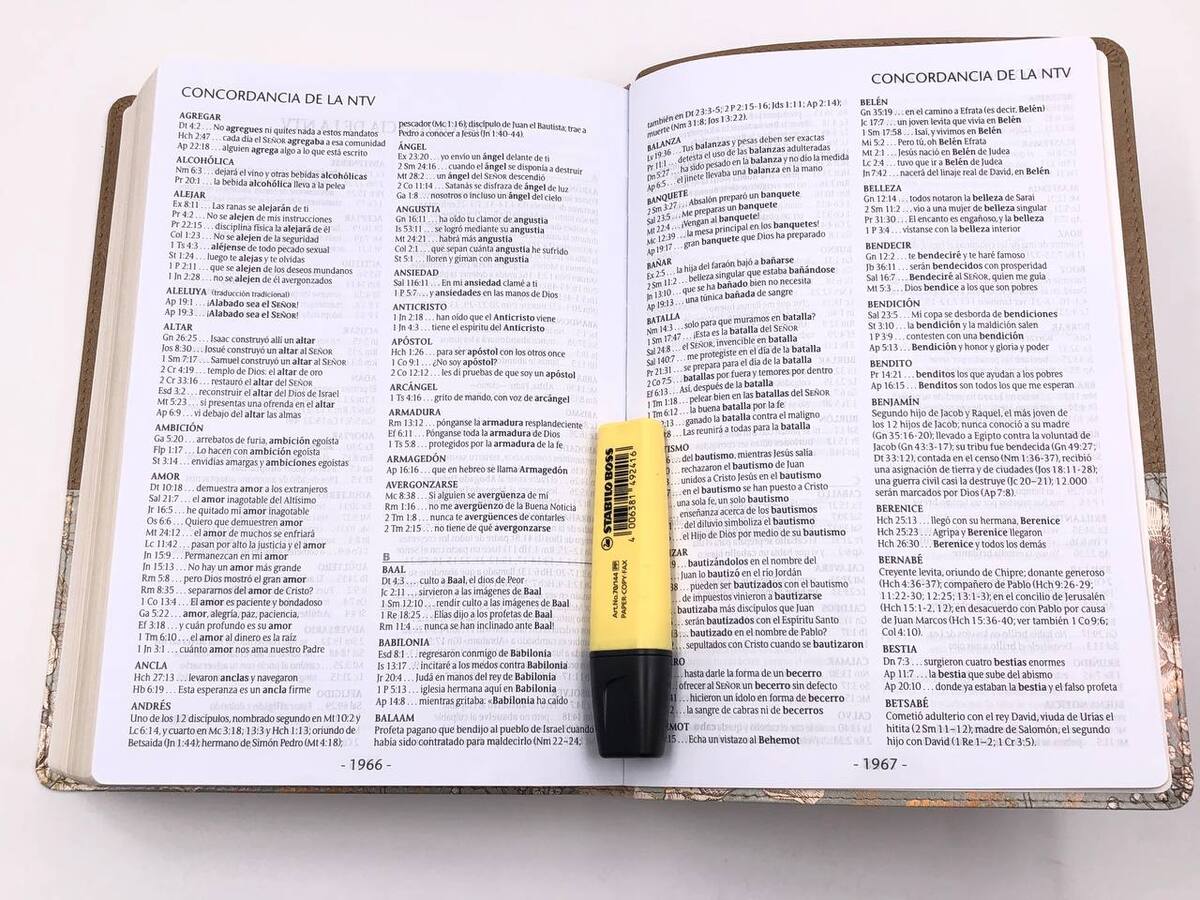 CONCORDANCIA DE LA NTV
AGREGAR
Dt 4:2 . . . No agregues ni quites nada a estos mandatos
Hch 2:47 . . . cada día el SEÑOR agregaba a esa comunidad
Ap 22:18 . . . alguien agrega algo a lo que está escrito
ALCOHÓLICA
Nm 6:3 . . . dejará el vino y otras bebidas alcohólicas
Pr 20:1 . . . la bebida alcohólica lleva a la pelea
ALEJAR
Ex 8:11 . . . Las ranas se alejarán de ti
Pr 4:2 . . . No se alejen de mis instrucciones
Pr 22:15 . . . disciplina física la alejará de él
Col 1:23 . . . No se alejen de la seguridad
1 Ts 4:3 . . . aléjense de todo pecado sexual
St 1:24 . . . luego te alejas y te olvidas
1 P 2:11 . . . que se alejen de los deseos mundanos
1 Jn 2:28 . . . no se alejen de él avergonzados
ALELUYA (traducción tradicional)
Ap 19:1 . . . ¡Alabado sea el SEÑOR!
Ap 19:3 . . . ¡Alabado sea el SEÑOR!
ALTAR
Gn 26:25 . . . Isaac construyó allí un altar
Jos 8:30 . . . Josué construyó un altar al SEÑOR
1 Sm 7:17 . . . Samuel construyó un altar al SEÑOR
2 Cr 4:19 . . . templo de Dios: el altar de oro
2 Cr 33:16 . . . restauró el altar del SEÑOR
Esd 3:2 . . . reconstruir el altar del Dios de Israel
Mt 5:23 . . . si presentas una ofrenda en el altar
Ap 6:9 . . . vi debajo del altar las almas
AMBICIÓN
Ga 5:20 . . . arrebatos de furia, ambición egoísta
Flp 1:17 . . . Lo hacen con ambición egoísta
St 3:14 . . . envidias amargas y ambiciones egoístas
AMOR
Dt 10:18 . . . demuestra amor a los extranjeros
Sal 21:7 . . . el amor inagotable del Altísimo
Jr 16:5 . . . he quitado mi amor inagotable
Os 6:6 . . . Quiero que demuestren amor
Mt 24:12 . . . el amor de muchos se enfriará
Lc 11:42 . . . pasan por alto la justicia y el amor
Jn 15:9 . . . Permanezcan en mi amor
Jn 15:13 . . . No hay un amor más grande
Rm 5:8 . . . pero Dios mostró el gran amor
Rm 8:35 . . . separarnos del amor de Cristo?
1 Co 13:4 . . . El amor es paciente y bondadoso
Ga 5:22 . . . amor, alegría, paz, paciencia,
Ef 3:18 . . . y cuán profundo es su amor
1 Tm 6:10 . . . el amor al dinero es la raíz
1 Jn 3:1 . . . cuánto amor nos ama nuestro Padre
ANCLA
Hch 27:13 . . . levaron anclas y navegaron
Hb 6:19 . . . Esta esperanza es un ancla firme
ANDRÉS
Uno de los 12 discípulos, nombrado segundo en Mt 10:2 y
Lc 6:14, y cuarto en Mc 3:18; 13:3 y Hch 1:13; oriundo de
Betsaida (Jn 1:44); hermano de Simón Pedro (Mt 4:18);
pescador (Mc 1:16); discípulo de Juan el Bautista; trae a
Pedro a conocer a Jesús (Jn 1:40-44).
ÁNGEL
Ex 23:20 . . . yo envío un ángel delante de ti
2 Sm 24:16 . . . cuando el ángel se disponía a destruir
Mt 28:2 . . . un ángel del SEÑOR descendió
2 Co 11:14 . . . Satanás se disfraza de ángel de luz
Ga 1:8 . . . nosotros o incluso un ángel del cielo
ANGUSTIA
Gn 16:11 . . . ha oído tu clamor de angustia
Is 53:11 . . . se logró mediante su angustia
Mt 24:21 . . . habrá más angustia
Col 2:1 . . . que sepan cuánta angustia he sufrido
St 5:1 . . . lloren y giman con angustia
ANSIEDAD
Sal 116:11 . . . En mi ansiedad clamé a ti
1 P 5:7 . . . y ansiedades en las manos de Dios
ANTICRISTO
1 Jn 2:18 . . . han oído que el Anticristo viene
1 Jn 4:3 . . . tiene el espíritu del Anticristo
APÓSTOL
Hch 1:26 . . . para ser apóstol con los otros once
1 Co 9:1 . . . ¿No soy apóstol?
2 Co 12:12 . . . les di pruebas de que soy un apóstol
ARCÁNGEL
1 Ts 4:16 . . . grito de mando, con voz de arcángel
ARMADURA
Rm 13:12 . . . pónganse la armadura resplandeciente
Ef 6:11 . . . Pónganse toda la armadura de Dios
1 Ts 5:8 . . . protegidos por la armadura de la fe
ARMAGEDÓN
Ap 16:16 . . . que en hebreo se llama Armagedón
AVERGONZARSE
Mc 8:38 . . . Si alguien se avergüenza de mí
Rm 1:16 . . . no me avergüenzo de la Buena Noticia
2 Tm 1:8 . . . nunca te avergüences de contarles
2 Tm 2:15 . . . no tiene de qué avergonzarse
B
BAAL
Dt 4:3 . . . culto a Baal, el dios de Peor
Jc 2:11 . . . sirvieron a las imágenes de Baal
1 Sm 12:10 . . . rendir culto a las imágenes de Baal
1 Re 18:25 . . . Elías dijo a los profetas de Baal
Rm 11:4 . . . nunca se han inclinado ante Baal!
BABILONIA
Esd 8:1 . . . regresaron conmigo de Babilonia
Is 13:17 . . . incitaré a los medos contra Babilonia
Jr 20:4 . . . Judá en manos del rey de Babilonia
1 P 5:13 . . . iglesia hermana aquí en Babilonia
Ap 14:8 . . . mientras gritaba: «Babilonia ha caído
BALAAM
Profeta pagano que bendijo al pueblo de Israel cuando
había sido contratado para maldecirlo (Nm 22–24;
- 1966 -
CONCORDANCIA DE LA NTV
también en Dt 23:3-5; 2 P 2:15-16; Jds 1:11; Ap 2:14);
muerte (Nm 31:8; Jos 13:22).
BALANZA
Lv 19:36 . . . Tus balanzas y pesas deben ser exactas
Pr 11:1 . . . detesta el uso de las balanzas adulteradas
Dn 5:27 . . . ha sido pesado en la balanza y no dio la medida
Ap 6:5 . . . el jinete llevaba una balanza en la mano
BANQUETE
2 Sm 3:27 . . . Absalón preparó un banquete
Sal 23:5 . . . Me preparas un banquete
Mt 22:4 . . . ¡Vengan al banquete!
Mc 12:39 . . . la mesa principal en los banquetes!
Ap 19:17 . . . gran banquete que Dios ha preparado
BAÑAR
Ex 2:5 . . . la hija del faraón bajó a bañarse
2 Sm 11:2 . . . belleza singular que estaba bañándose
Jn 13:10 . . . que se ha bañado bien no necesita
Ap 19:13 . . . una túnica bañada de sangre
BATALLA
Nm 14:3 . . . solo para que muramos en batalla?
1 Sm 17:47 . . . ¡Esta es la batalla del SEÑOR
Sal 24:8 . . . el SEÑOR, invencible en batalla
Sal 140:7 . . . me protegiste en el día de la batalla
Pr 21:31 . . . se prepara para el día de la batalla
2 Co 7:5 . . . batallas por fuera y temores por dentro
Ef 6:13 . . . Así, después de la batalla
1 Tm 1:18 . . . pelear bien en las batallas del SEÑOR
1 Tm 6:12 . . . la buena batalla por la fe
2:13 . . . ganado la batalla contra el maligno
. . . Las reunirá a todas para la batalla
TISMO
. . . del bautismo, mientras Jesús salía
. . . rechazaron el bautismo de Juan
unidos a Cristo Jesús en el bautismo
. . . en el bautismo se han puesto a Cristo
. . . una sola fe, un solo bautismo
. . . enseñanza acerca de los bautismos
. . . del diluvio simboliza el bautismo
. . . el Hijo de Dios por medio de su bautismo
IZAR
. . . bautizándolos en el nombre del
Juan lo bautizó en el río Jordán
. . . pueden ser bautizados con el bautismo
. . . de impuestos vinieron a bautizarse
bautizaba más discípulos que Juan
. . . serán bautizados con el Espíritu Santo
. . . bautizado en el nombre de Pablo?
. . . sepultados con Cristo cuando se bautizaron
RO
. . . hasta darle la forma de un becerro
. . . ofrecer al SEÑOR un becerro sin defecto
. . . hicieron un ídolo en forma de becerro
. . . la sangre de cabras ni de becerros
MOT
:15 . . . Echa un vistazo al Behemot
BELÉN
Gn 35:19 . . . en el camino a Efrata (es decir, Belén)
Jc 17:7 . . . un joven levita que vivía en Belén
1 Sm 17:58 . . . Isaí, y vivimos en Belén
Mi 5:2 . . . Pero tú, oh Belén Efrata
Mt 2:1 . . . Jesús nació en Belén de Judea
Lc 2:4 . . . tuvo que ir a Belén de Judea
Jn 7:42 . . . nacerá del linaje real de David, en Belén
BELLEZA
Gn 12:14 . . . todos notaron la belleza de Sarai
2 Sm 11:2 . . . vio a una mujer de belleza singular
Pr 31:30 . . . El encanto es engañoso, y la belleza
1 P 3:4 . . . vístanse con la belleza interior
BENDECIR
Gn 12:2 . . . te bendeciré y te haré famoso
Jb 36:11 . . . serán bendecidos con prosperidad
Sal 16:7 . . . Bendeciré al SEÑOR, quien me guía
Mt 5:3 . . . Dios bendice a los que son pobres
BENDICIÓN
Sal 23:5 . . . Mi copa se desborda de bendiciones
St 3:10 . . . la bendición y la maldición salen
1 P 3:9 . . . contesten con una bendición
Ap 5:13 . . . Bendición y honor y gloria y poder
BENDITO
Pr 14:21 . . . benditos los que ayudan a los pobres
Ap 16:15 . . . Benditos son todos los que me esperan
BENJAMÍN
Segundo hijo de Jacob y Raquel, el más joven de
los 12 hijos de Jacob; nunca conoció a su madre
(Gn 35:16-20); llevado a Egipto contra la voluntad de
Jacob (Gn 43:3-17); su tribu fue bendecida (Gn 49:27;
Dt 33:12), contada en el censo (Nm 1:36-37), recibió
una asignación de tierra y de ciudades (Jos 18:11-28);
una guerra civil casi la destruye (Jc 20–21); 12.000
serán marcados por Dios (Ap 7:8).
BERENICE
Hch 25:13 . . . llegó con su hermana, Berenice
Hch 25:23 . . . Agripa y Berenice llegaron
Hch 26:30 . . . Berenice y todos los demás
BERNABÉ
Creyente levita, oriundo de Chipre; donante generoso
(Hch 4:36-37); compañero de Pablo (Hch 9:26-29;
11:22-30; 12:25; 13:1-3); en el concilio de Jerusalén
(Hch 15:1-2, 12); en desacuerdo con Pablo por causa
de Juan Marcos (Hch 15:36-40; ver también 1 Co 9:6;
Col 4:10).
BESTIA
Dn 7:3 . . . surgieron cuatro bestias enormes
Ap 11:7 . . . la bestia que sube del abismo
Ap 20:10 . . . donde ya estaban la bestia y el falso profeta
BETSABÉ
Cometió adulterio con el rey David, viuda de Urías el
hitita (2 Sm 11–12); madre de Salomón, el segundo
hijo con David (1 Re 1–2; 1 Cr 3:5).
- 1967 -
STABILO BOSS
4 006381 492416
Art.No.70/144
PAPER·COPY·FAX